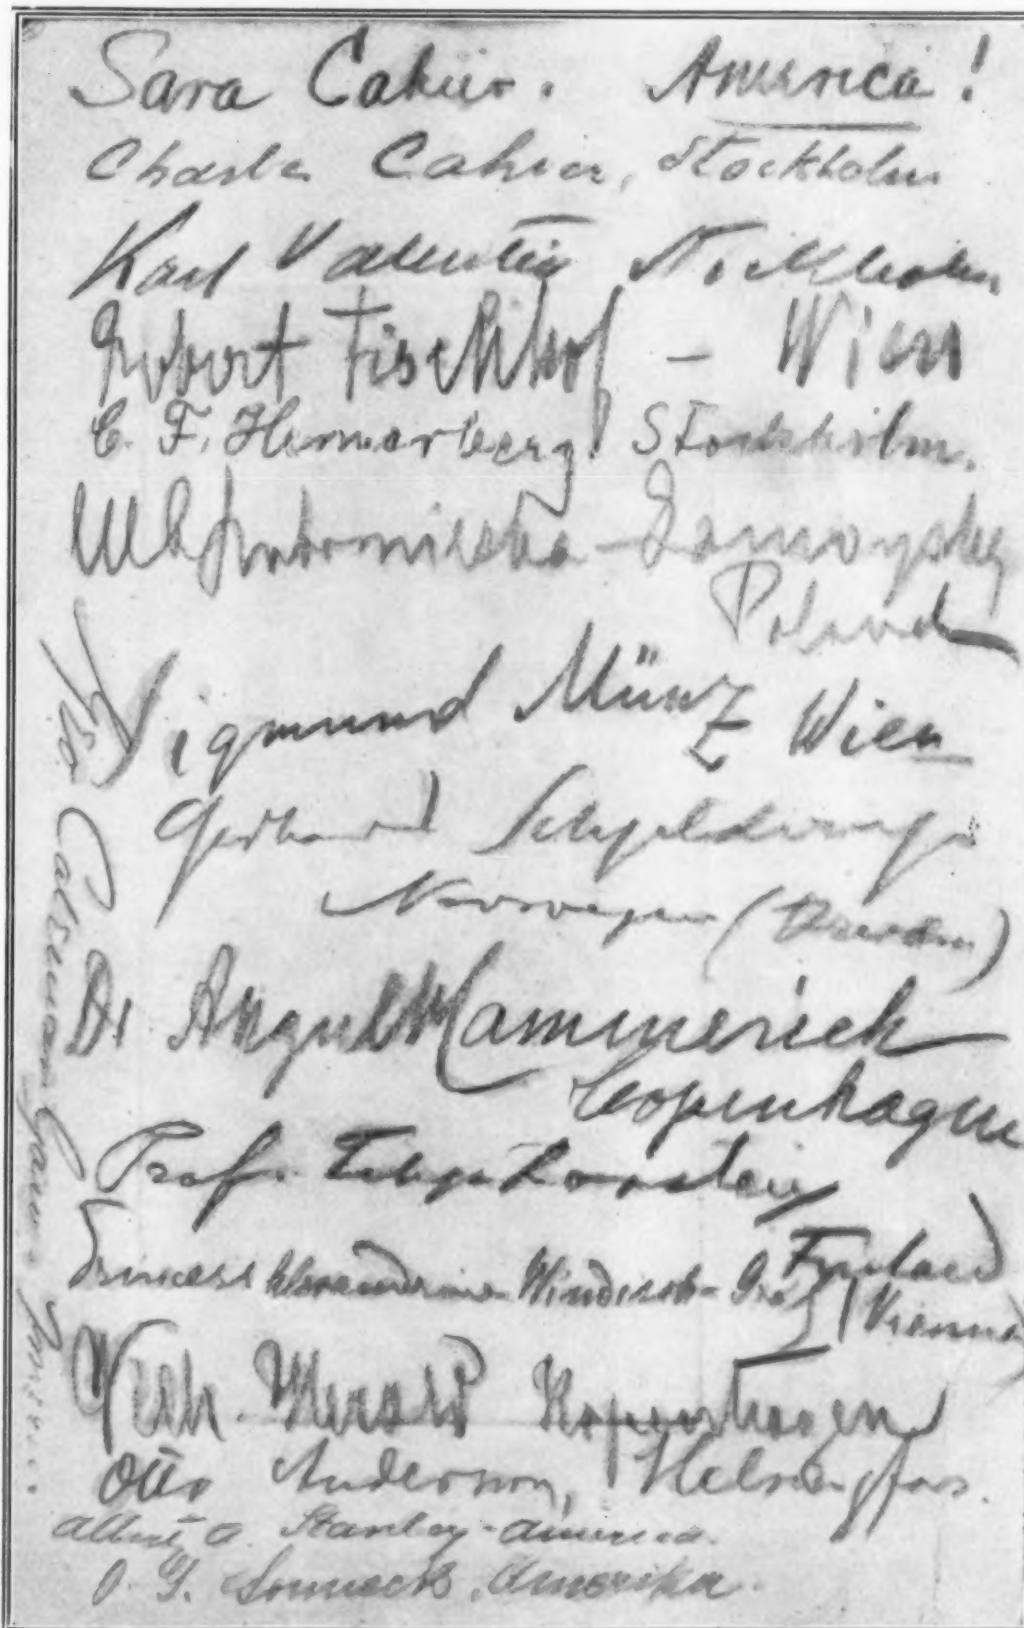 Sara Cahier. America!
Charles Cahier, Stockholm
Karl Valentin Stockholm
Robert Fischhof – Wien
C. F. Hennerberg Stockholm.
Poland
Sigmund Münz Wien
Gerhard Schjelderup
Norwegen (Dresden)
Dr Angul Hammerich
Copenhagen
Prof.
Finland
Princess Alexandrine Windisch-Graetz (Vienna)
Kopenhagen
Otto Andersson, Helsingfors.
Albert A. Stanley – America.
O. G. Sonneck, Amerika.